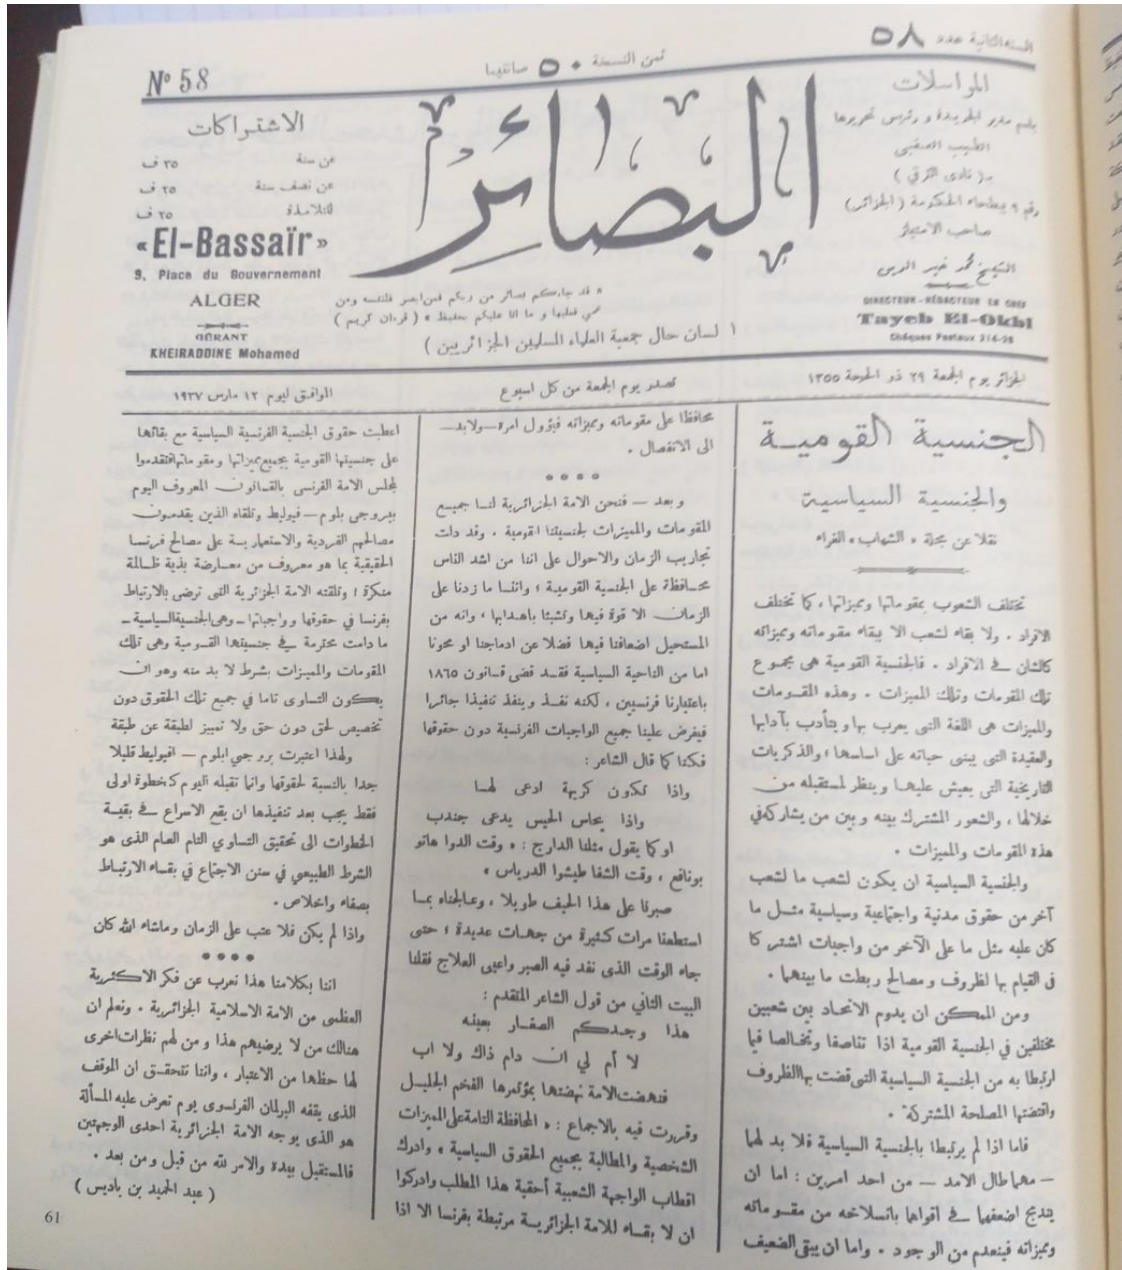 السنة الثانية عدد ٥٨
ثمن النسخة ٥٠ صانتيما
N° 58
المراسلات
باسم مدير الجريدة ورئيس تحريرها
الطيب العقبي
بـ(نادي الترقي)
رقم ٩ ببطحاء الحكومة (الجزائر)
صاحب الامتياز
الشيخ محمد خير الدين
DIRECTEUR-RÉDACTEUR EN CHEF
Tayeb El-Okbi
Chèques Postaux
البصائر
« قد جاءكم بصائر من ربكم فمن ابصر فلنفسه ومن
عمي فعليها وما انا عليكم بحفيظ » (قرءان كريم)
( لسان حال جمعية العلماء المسلمين الجزائريين )
الاشتراكات
عن سنة ٣٥ ف
عن نصف سنة ٢٥ ف
للتلامذة ٢٥ ف
«El-Bassaïr»
9, Place du Gouvernement
ALGER
GÉRANT
KHEIRADDINE Mohamed
الجزائر يوم الجمعة ٢٩ ذو الحجة ١٣٥٥
تصدر يوم الجمعة من كل اسبوع
الموافق ليوم ١٢ مارس ١٩٣٧
الجنسية القومية
والجنسية السياسية
نقلا عن مجلة « الشهاب » الغراء
تختلف الشعوب بمقوماتها ومميزاتها ، كما تختلف
الافراد . ولا بقاء لشعب الا ببقاء مقوماته ومميزاته
كالشان في الافراد . فالجنسية القومية هي مجموع
تلك المقومات وتلك المميزات . وهذه المقومات
والمميزات هي اللغة التي يعرب بها ويتأدب بآدابها
والعقيدة التي يبنى حياته على اساسها ، والذكريات
التاريخية التي يعيش عليها وينظر لمستقبله من
خلالها ، والشعور المشترك بينه وبين من يشاركه في
هذه المقومات والمميزات .
والجنسية السياسية ان يكون لشعب ما لشعب
آخر من حقوق مدنية واجتماعية وسياسية مثل ما
كان عليه مثل ما على الآخر من واجبات اشتركا
في القيام بها لظروف ومصالح ربطت ما بينهما .
ومن الممكن ان يدوم الاتحاد بين شعبين
مختلفين في الجنسية القومية اذا تناصفا وتخالصا فيما
ارتبطا به من الجنسية السياسية التي قضت بها الظروف
واقتضتها المصلحة المشتركة .
فاما اذا لم يرتبطا بالجنسية السياسية فلا بد لهما
— مهما طال الامد — من احد امرين : اما ان
يندمج اضعفهما في اقواهما بانسلاخه من مقوماته
ومميزاته فينعدم من الوجود . واما ان يبقى الضعيف
محافظا على مقوماته ومميزاته فيؤول امره — ولابد —
الى الانفصال .
••••
وبعد — فنحن الامة الجزائرية لنا جميع
المقومات والمميزات لجنسيتنا القومية . وقد دلت
تجاريب الزمان والاحوال على اننا من اشد الناس
محافظة على الجنسية القومية ، واننا ما زدنا على
الزمان الا قوة فيها وتشبثا باهدابها ، وانه من
المستحيل اضعافنا فيها فضلا عن ادماجنا او محونا
اما من الناحية السياسية فقد قضى قانون ١٨٦٥
باعتبارنا فرنسيين ، لكنه نفذ وينفذ تنفيذا جائرا
فيفرض علينا جميع الواجبات الفرنسية دون حقوقها
فكنا كما قال الشاعر :
واذا تكون كريهة ادعى لها
واذا يحاس الحيس يدعى جندب
او كما يقول مثلنا الدارج : « وقت الدوا هاتو
بونافع ، وقت الشفا طيشوا الدرياس »
صبرنا على هذا الحيف طويلا ، وعالجناه بما
استطعنا مرات كثيرة من جهات عديدة ؛ حتى
جاء الوقت الذي نفد فيه الصبر واعيى العلاج فقلنا
البيت الثاني من قول الشاعر المتقدم :
هذا وجدكم الصغار بعينه
لا أم لي ان دام ذاك ولا اب
فنهضت الامة نهضتها بمؤتمرها الفخم الجليل
وقررت فيه بالاجماع : « المحافظة التامة على المميزات
الشخصية والمطالبة بجميع الحقوق السياسية » وادرك
اقطاب الواجهة الشعبية أحقية هذا المطلب وادركوا
ان لا بقاء للامة الجزائرية مرتبطة بفرنسا الا اذا
اعطيت حقوق الجنسية الفرنسية السياسية مع بقائها
على جنسيتها القومية بجميع مميزاتها ومقوماتها فتقدموا
لمجلس الامة الفرنسي بالقانون المعروف اليوم
ببروجي بلوم — فيوليط وتلقاه الذين يقدمون
مصالحهم الفردية والاستعمارية على مصالح فرنسا
الحقيقية بما هو معروف من معارضة بذية ظالمة
منكرة ؛ وتلقته الامة الجزائرية التي ترضى بالارتباط
بفرنسا في حقوقها وواجباتها — وهي الجنسية السياسية —
ما دامت محترمة في جنسيتها القومية وهي تلك
المقومات والمميزات بشرط لا بد منه وهو ان
يكون التساوى تاما في جميع تلك الحقوق دون
تخصيص لحق دون حق ولا تمييز لطبقة عن طبقة
ولهذا اعتبرت بروجي ابلوم — افيوليط قليلا
جدا بالنسبة لحقوقها وانما تقبله اليوم كخطوة اولى
فقط يجب بعد تنفيذها ان يقع الاسراع في بقية
الخطوات الى تحقيق التساوي التام العام الذي هو
الشرط الطبيعي في سنن الاجتماع في بقاء الارتباط
بصفاء واخلاص .
واذا لم يكن فلا عتب على الزمان وماشاء الله كان
••••
اننا بكلامنا هذا نعرب عن فكر الاكثرية
العظمى من الامة الاسلامية الجزائرية . ونعلم ان
هنالك من لا يرضيهم هذا ومن لهم نظرات اخرى
لها حظها من الاعتبار ، واننا نتحقق ان الموقف
الذي يقفه البرلمان الفرنسوي يوم تعرض عليه المسألة
هو الذي يوجه الامة الجزائرية احدى الوجهتين
فالمستقبل بيده والامر لله من قبل ومن بعد .
( عبد الحميد بن باديس )
61